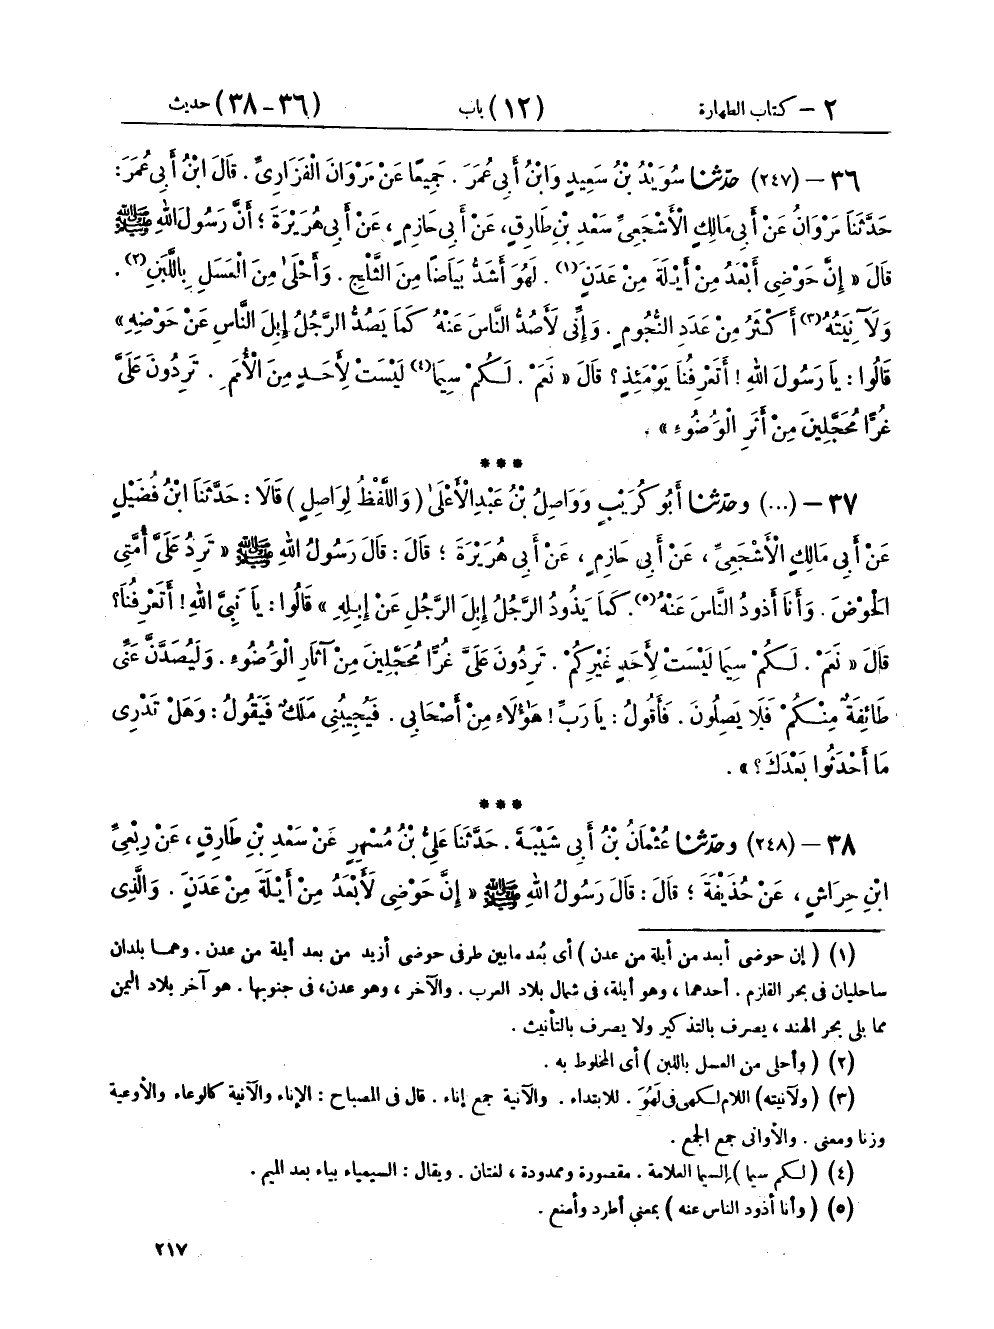 ٢ – كتاب الطهارة (١٢) باب (٣٦-٣٨) حديث
٣٦ – (٢٤٧) حدّثنا سُوَيْدُ بْنُ سَعِيدٍ وَابْنُ أَبِي عُمَرَ . جَمِيعًا عَنْ مَرْوَانَ الْفَزَارِيِّ . قَالَ ابْنُ أَبِي عُمَرَ :
حَدَّثَنَا مَرْوَانُ عَنْ أَبِي مَالِكٍ الْأَشْجَعِيِّ سَعْدِ بْنِ طَارِقٍ، عَنْ أَبِي حَازِمٍ ، عَنْ أَبِي هُرَيْرَةَ ؛ أَنَّ رَسُولَ اللهِ ﷺ
قَالَ « إِنَّ حَوْضِي أَبْعَدُ مِنْ أَيْلَةَ مِنْ عَدَنٍ(١) . لَهُوَ أَشَدُّ بَيَاضًا مِنَ الثَّلْجِ . وَأَحْلَىٰ مِنَ الْعَسَلِ بِاللَّبَنِ(٢) .
وَلَآنِيَتُهُ(٣) أَكْثَرُ مِنْ عَدَدِ النُّجُومِ . وَإِنِّي لَأَصُدُّ النَّاسَ عَنْهُ كَمَا يَصُدُّ الرَّجُلُ إِبِلَ النَّاسِ عَنْ حَوْضِهِ»
قَالُوا : يَا رَسُولَ اللهِ ! أَتَعْرِفُنَا يَوْمَئِذٍ ؟ قَالَ « نَعَمْ . لَكُمْ سِيمَا(٤) لَيْسَتْ لِأَحَدٍ مِنَ الْأُمَمِ . تَرِدُونَ عَلَيَّ
غُرًّا مُحَجَّلِينَ مِنْ أَثَرِ الْوُضُوءِ » .
***
٣٧ – (...) وحدّثنا أَبُو كُرَيْبٍ وَوَاصِلُ بْنُ عَبْدِ الْأَعْلَىٰ ( وَاللَّفْظُ لِوَاصِلٍ ) قَالَا : حَدَّثَنَا ابْنُ فُضَيْلٍ
عَنْ أَبِي مَالِكٍ الْأَشْجَعِيِّ ، عَنْ أَبِي حَازِمٍ ، عَنْ أَبِي هُرَيْرَةَ ؛ قَالَ : قَالَ رَسُولُ اللهِ ﷺ « تَرِدُ عَلَيَّ أُمَّتِي
الْحَوْضَ . وَأَنَا أَذُودُ النَّاسَ عَنْهُ(٥). كَمَا يَذُودُ الرَّجُلُ إِبِلَ الرَّجُلِ عَنْ إِبِلِهِ » قَالُوا : يَا نَبِيَّ اللهِ ! أَتَعْرِفُنَا؟
قَالَ « نَعَمْ . لَكُمْ سِيمَا لَيْسَتْ لِأَحَدٍ غَيْرِكُمْ . تَرِدُونَ عَلَيَّ غُرًّا مُحَجَّلِينَ مِنْ آثَارِ الْوُضُوءِ . وَلَيُصَدَّنَّ عَنِّي
طَائِفَةٌ مِنْكُمْ فَلَا يَصِلُونَ . فَأَقُولُ : يَا رَبِّ ! هَؤُلَاءِ مِنْ أَصْحَابِي . فَيُجِيبُنِي مَلَكٌ فَيَقُولُ : وَهَلْ تَدْرِي
مَا أَحْدَثُوا بَعْدَكَ ؟ » .
***
٣٨ – (٢٤٨) وحدّثنا عُثْمَانُ بْنُ أَبِي شَيْبَةَ . حَدَّثَنَا عَلِيُّ بْنُ مُسْهِرٍ عَنْ سَعْدِ بْنِ طَارِقٍ ، عَنْ رِبْعِيِّ
ابْنِ حِرَاشٍ ، عَنْ حُذَيْفَةَ ؛ قَالَ : قَالَ رَسُولُ اللهِ ﷺ « إِنَّ حَوْضِي لَأَبْعَدُ مِنْ أَيْلَةَ مِنْ عَدَنَ . وَالَّذِي
(١) ( إن حوضى أبعد من أيلة من عدن ) أى بُعد مابين طرفى حوضى أزيد من بعد أيلة من عدن . وهما بلدان
ساحليان فى بحر القلزم . أحدهما ، وهو أيلة، فى شمال بلاد العرب . والآخر ، وهو عدن، فى جنوبها . هو آخر بلاد اليمن
مما يلى بحر الهند ، يصرف بالتذكير ولا يصرف بالتأنيث .
(٢) ( وأحلى من العسل باللبن ) أى المخلوط به .
(٣) ( ولآنيته) اللام لكهى فى لَهُوَ . للابتداء . والآنية جمع إناء . قال فى المصباح : الإناء والآنية كالوعاء والأوعية
وزنا ومعنى . والأوانى جمع الجمع .
(٤) ( لكم سيما ) السيما العلامة . مقصورة وممدودة ، لغتان . ويقال : السيمياء بياء بعد الميم .
(٥) ( وأنا أذود الناس عنه ) بمعنى أطرد وأمنع .
٢١٧